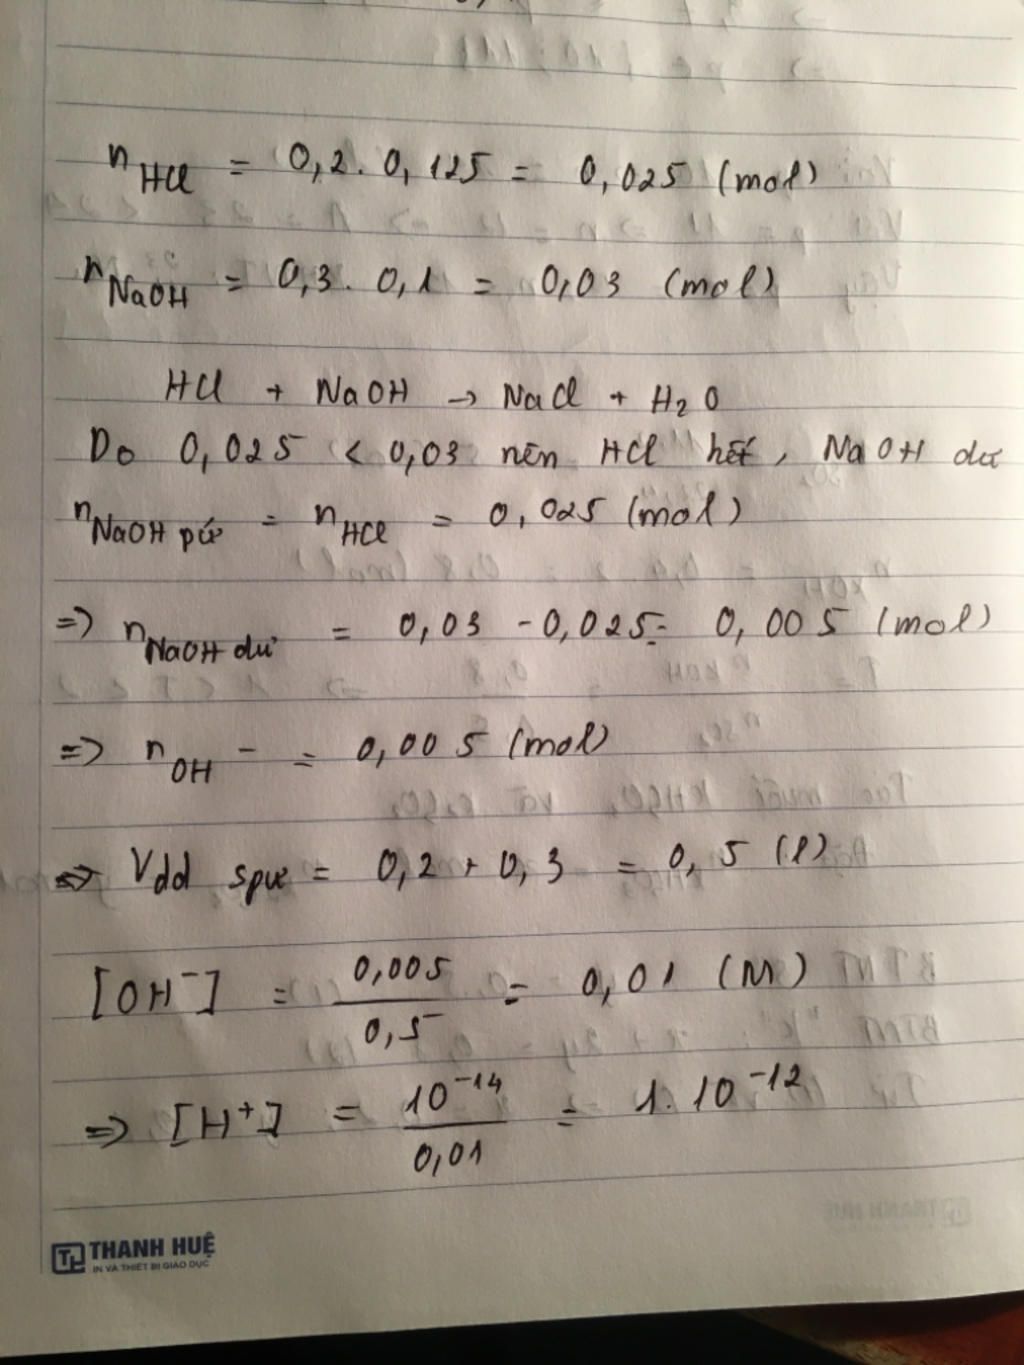 n HCl = 0,2. 0,125 = 0,025 (mol)
n NaOH = 0,3. 0,1 = 0,03 (mol)
HCl + NaOH → NaCl + H2O
Do 0,025 < 0,03 nên HCl hết, NaOH dư
n NaOH pứ = n HCl = 0,025 (mol)
=> n NaOH dư = 0,03 - 0,025 = 0,005 (mol)
=> n OH⁻ = 0,005 (mol)
=> Vdd spư = 0,2 + 0,3 = 0,5 (l)
[OH⁻] = 0,005 / 0,5 = 0,01 (M)
=> [H⁺] = 10⁻¹⁴ / 0,01 = 1. 10⁻¹²
THANH HUỆ
IN VÀ THIẾT BỊ GIÁO DỤC